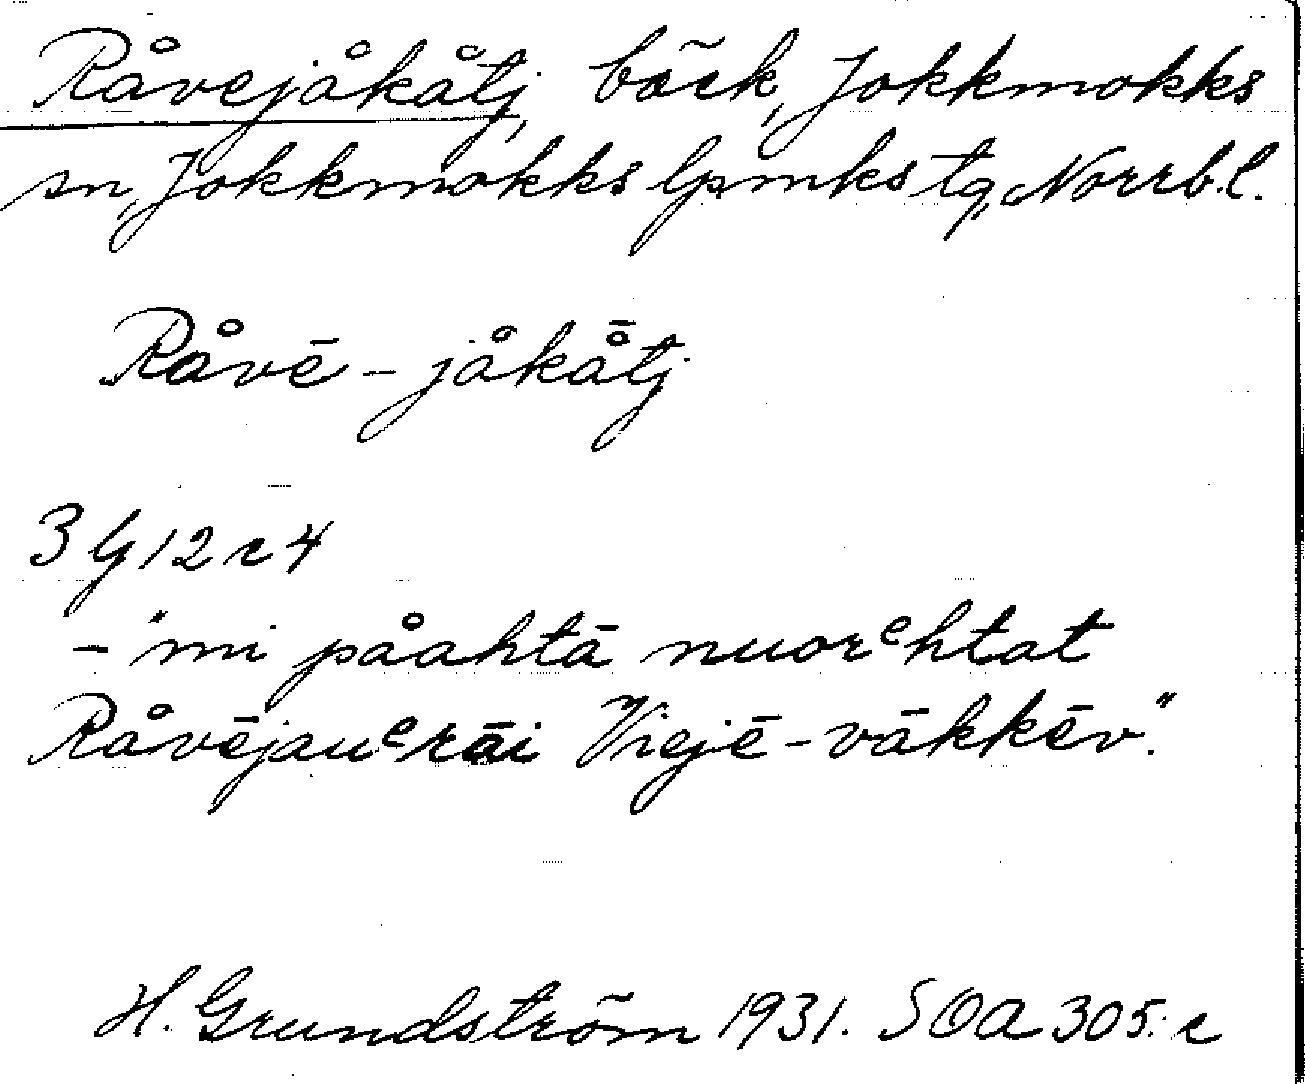 Råvejåkåtj, bäck, Jokkmokks
sn, Jokkmokks lpmks tg, Norrb.l.
Råvē - jåkå̄tj
3 G 12 c 4
- "mi påahtā nuorᵉhtat
Råvējauᵉrāi Viejē - vākkēv."
H. Grundström 1931. SOA 305: c